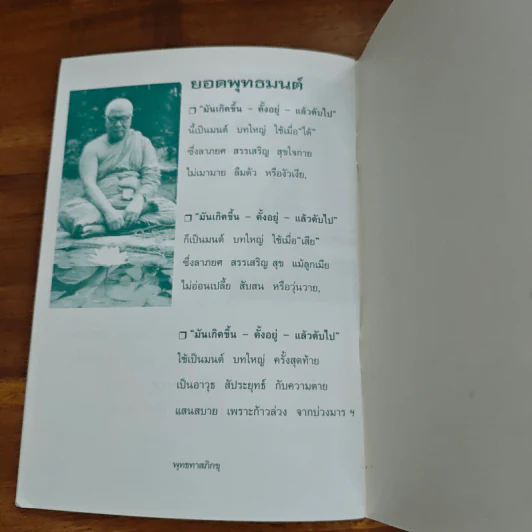 ยอดพุทธมนต์
❐ "มันเกิดขึ้น – ตั้งอยู่ – แล้วดับไป"
นี้เป็นมนต์ บทใหญ่ ใช้เมื่อ"ได้"
ซึ่งลาภยศ สรรเสริญ สุขใจกาย
ไม่เมามาย ลืมตัว หรืองัวเงีย,
❐ "มันเกิดขึ้น – ตั้งอยู่ – แล้วดับไป"
ก็เป็นมนต์ บทใหญ่ ใช้เมื่อ"เสีย"
ซึ่งลาภยศ สรรเสริญ สุข แม้ลูกเมีย
ไม่อ่อนเปลี้ย สับสน หรือวุ่นวาย,
❐ "มันเกิดขึ้น – ตั้งอยู่ – แล้วดับไป"
ใช้เป็นมนต์ บทใหญ่ ครั้งสุดท้าย
เป็นอาวุธ สัประยุทธ์ กับความตาย
แสนสบาย เพราะก้าวล่วง จากบ่วงมาร ฯ
พุทธทาสภิกขุ